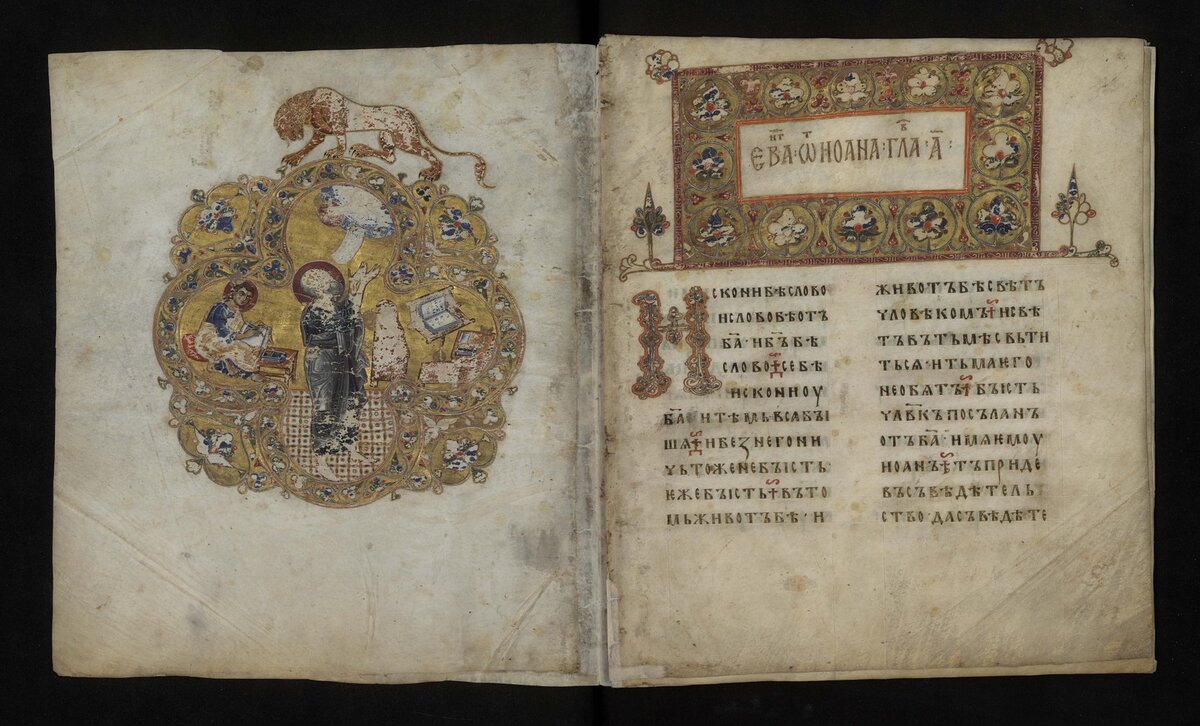 ЕВАнг҃ · Ѡт ИОАНА · ГЛАв · А҃ :
ИСКОНИ БѢ СЛОВО
И СЛОВО БѢ ОТЪ
БА҃ · И БЪ҃ БѢ
СЛОВО · СЕ БѢ
ИСКОНИ ОУ
БА҃ · И ТѢМЬ ВСА БꙐ
ШѦ · И БЕЗ НЕГО НИ
ЧЬТОЖЕ НЕ БꙐСТЬ ·
ѤЖЕ БꙐСТЬ · ВЪ ТО
МЬ ЖИВОТЪ БѢ · И
ЖИВОТЪ БѢ СВѢТЪ
ЧЛОВѢКОМЪ · И СВѢ
ТЪ ВЪ ТЬМѢ СВЬТИ
ТЬСѦ · И ТЬМА ѤГО
НЕ ОБѦТЪ · БꙐСТЬ
ЧЛВ҃КЪ ПОСЪЛАНЪ
ОТЪ БА҃ · ИМѦ ѤМОУ
ИОАНЪ · ТЪ ПРИДЕ
ВЪ СЪВѢДѢТЕЛЬ
СТВО · ДА СЪВѢДѢТЕ